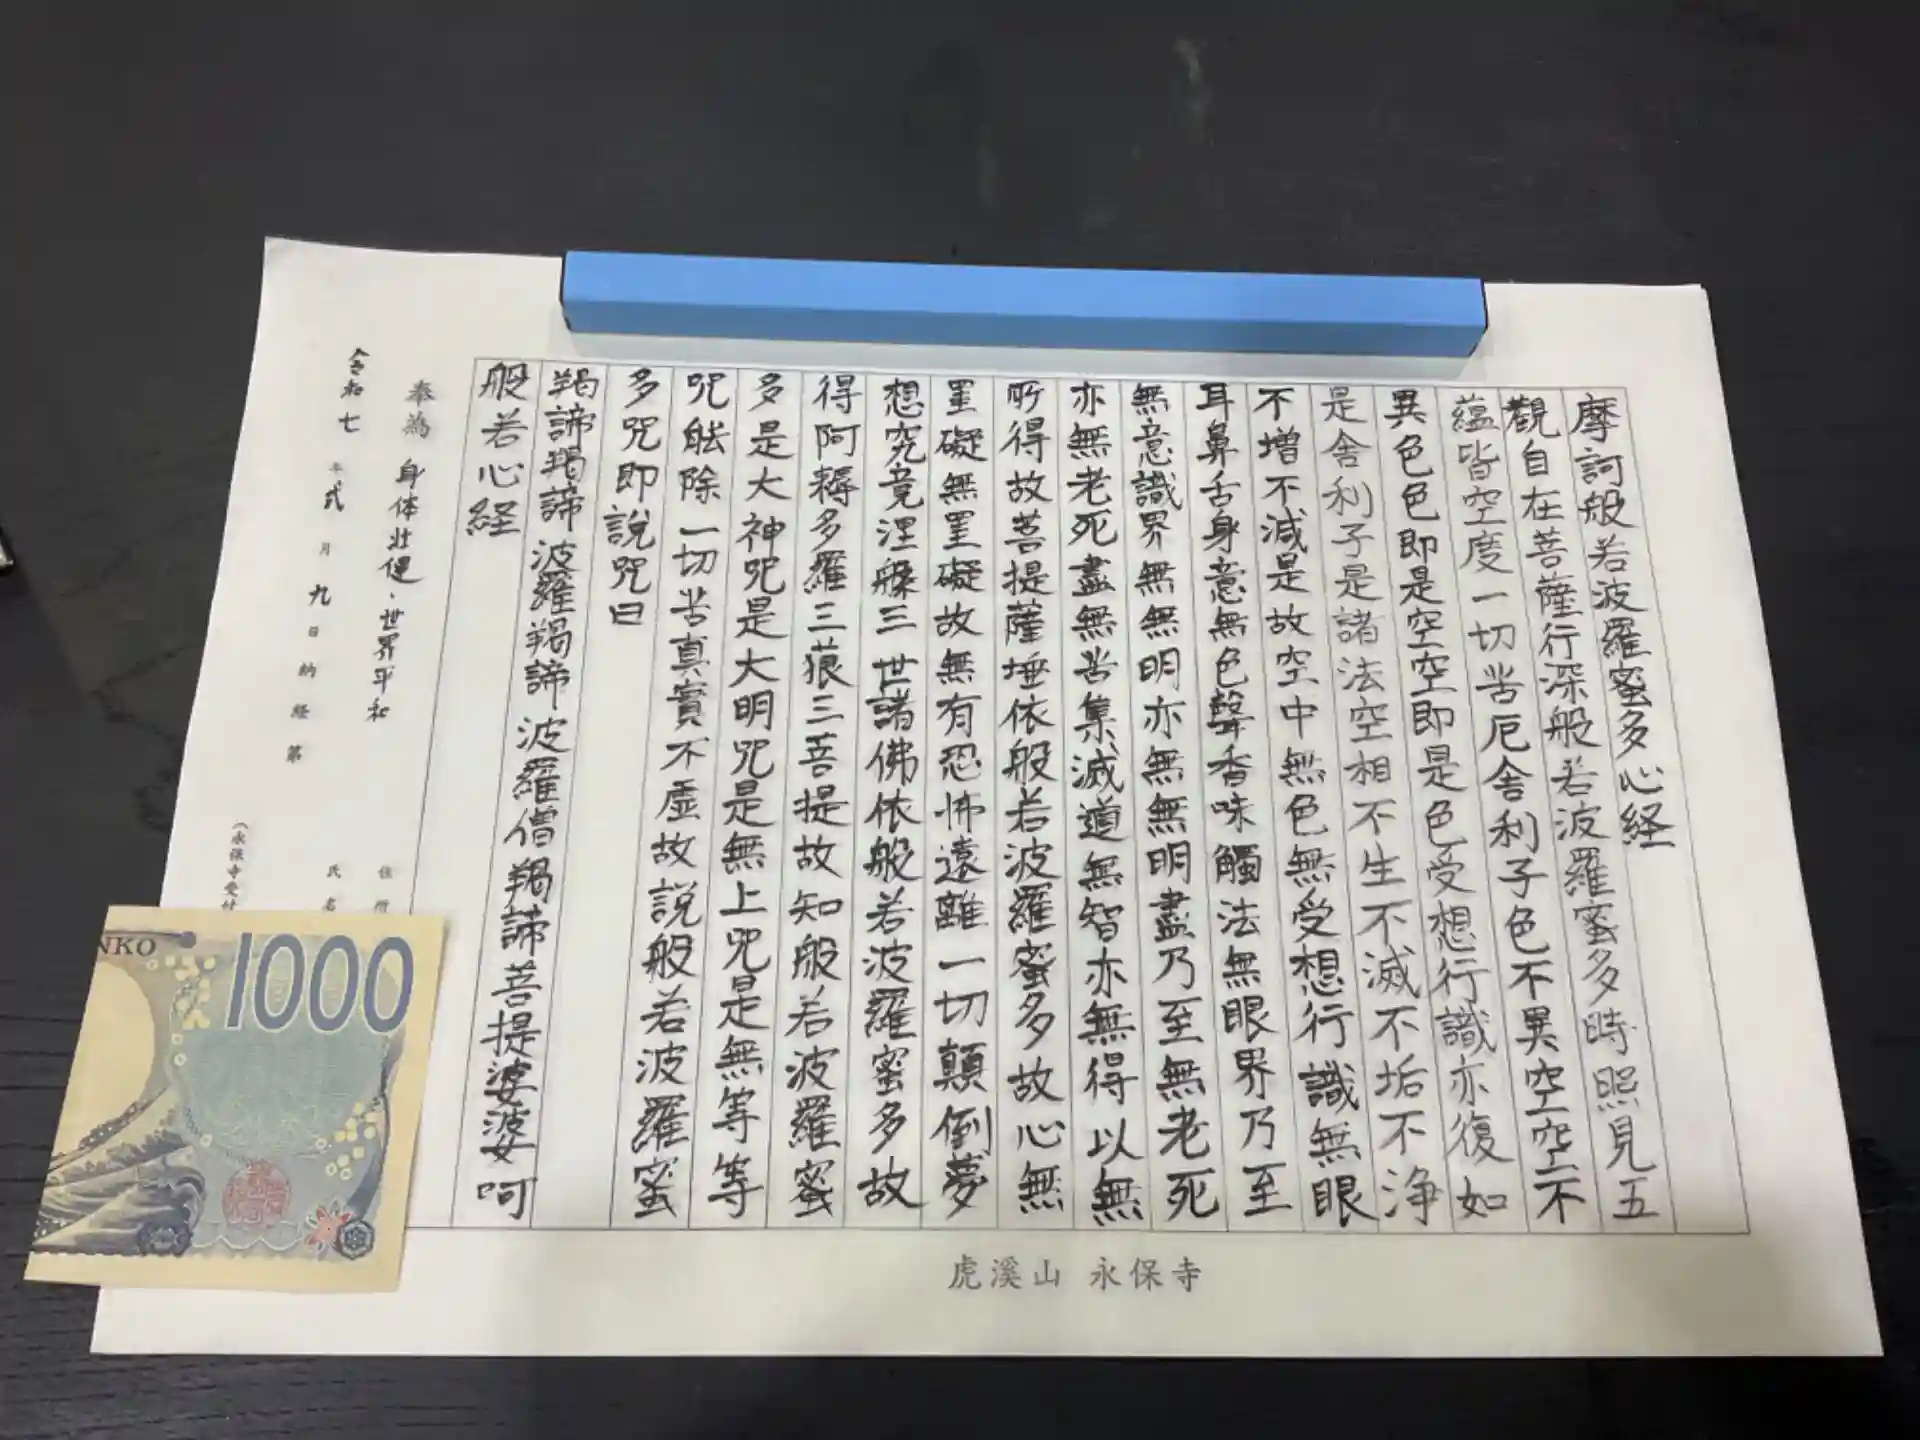 摩訶般若波羅蜜多心経
觀自在菩薩行深般若波羅蜜多時照見五
蘊皆空度一切苦厄舎利子色不異空空不
異色色即是空空即是色受想行識亦復如
是舎利子是諸法空相不生不滅不垢不浄
不増不減是故空中無色無受想行識無眼
耳鼻舌身意無色聲香味觸法無眼界乃至
無意識界無無明亦無無明盡乃至無老死
亦無老死盡無苦集滅道無智亦無得以無
所得故菩提薩埵依般若波羅蜜多故心無
罣礙無罣礙故無有恐怖遠離一切顛倒夢
想究竟涅槃三世諸佛依般若波羅蜜多故
得阿耨多羅三藐三菩提故知般若波羅蜜
多是大神咒是大明咒是無上咒是無等等
咒能除一切苦真實不虚故説般若波羅蜜
多咒即説咒曰
羯諦羯諦波羅羯諦波羅僧羯諦菩提婆婆呵
般若心経
奉為 身体壮健、世界平和
住所
令和七年弐月九日納経第
氏名
(永保寺受付
虎溪山 永保寺
NKO
1000